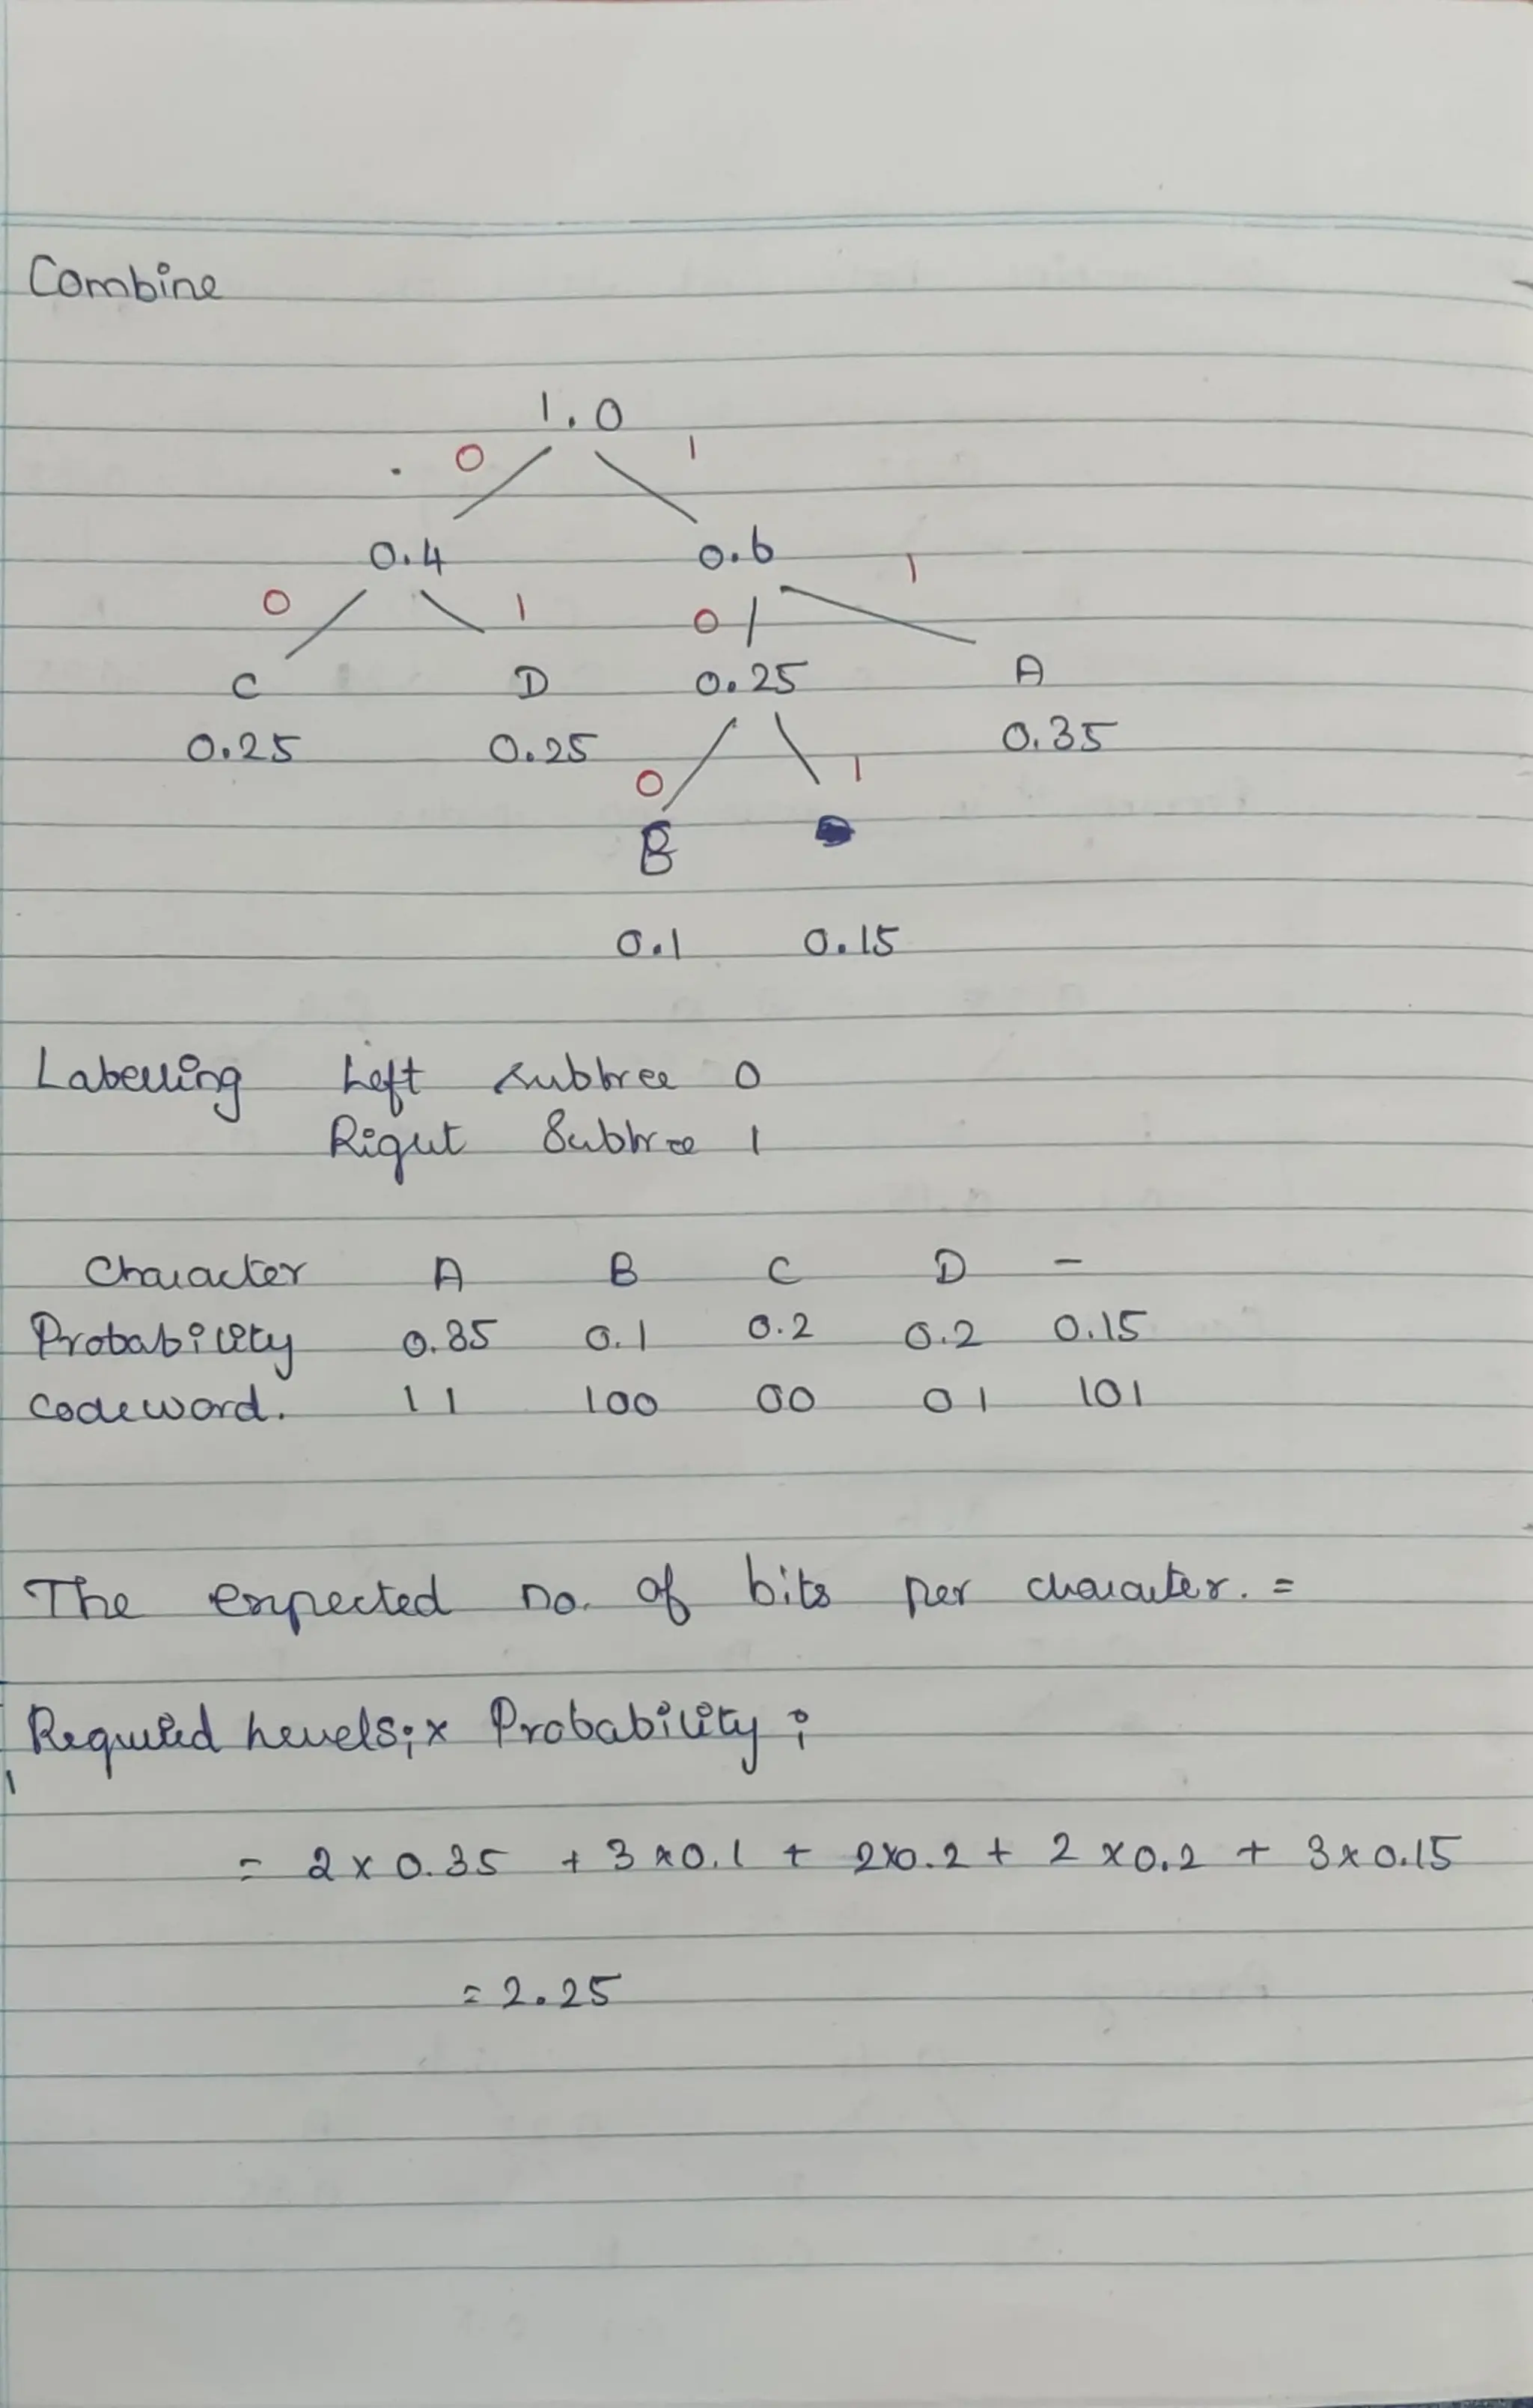 Combine
1.0
0 1
0.4 0.6
0 1 0 1
C D 0.25 A
0.25 0.25 0.35
0 1
B
0.1 0.15
Labelling Left subtree 0
Right Subtree 1
Character A B C D -
Probability 0.35 0.1 0.2 0.2 0.15
Codeword. 11 100 00 01 101
The expected no. of bits per character. =
Required levels; x Probability ;
= 2 x 0.35 + 3 x 0.1 + 2x0.2 + 2 x 0.2 + 3 x 0.15
= 2.25